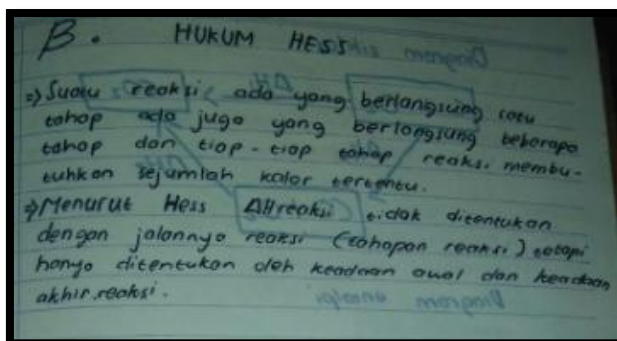 B. HUKUM HESS
=> Suatu reaksi ada yang berlangsung satu
tahap ada juga yang berlangsung beberapa
tahap dan tiap-tiap tahap reaksi membu-
tuhkan sejumlah kalor tertentu.
=> Menurut Hess ΔHreaksi tidak ditentukan
dengan jalannya reaksi (tahapan reaksi) tetapi
hanya ditentukan oleh keadaan awal dan keadaan
akhir reaksi.